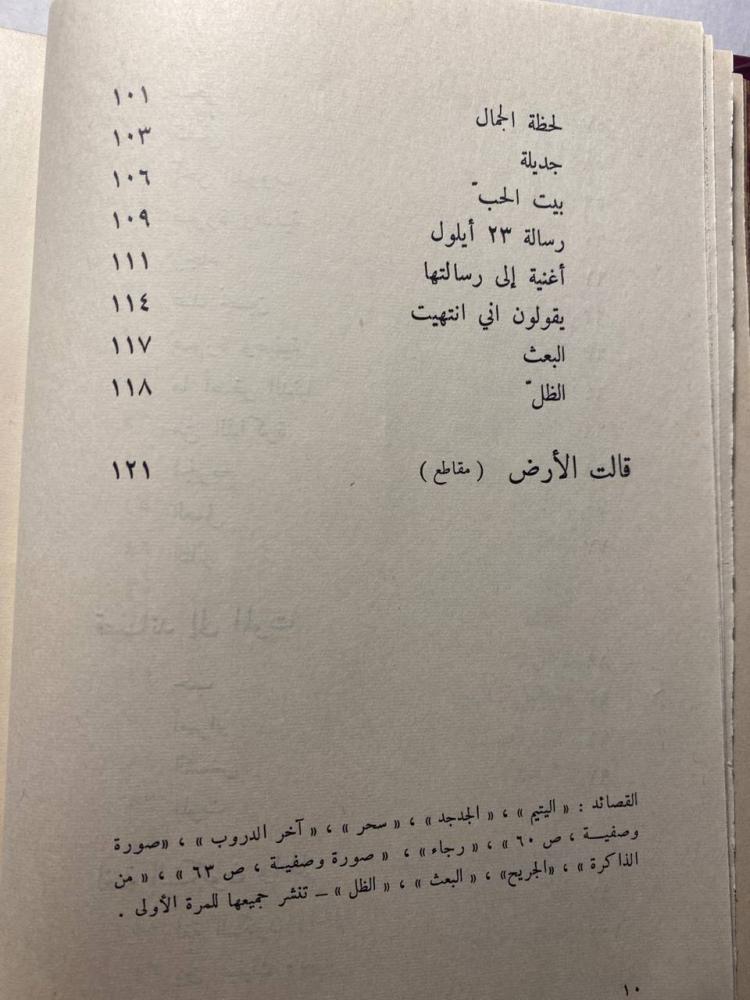 لحظة الجمال ١٠١
جديلة ١٠٣
بيت الحبّ ١٠٦
رسالة ٢٣ أيلول ١٠٩
أغنية إلى رسالتها ١١١
يقولون اني انتهيت ١١٤
البعث ١١٧
الظلّ ١١٨
قالت الأرض ( مقاطع ) ١٢١
القصائد : « اليتيم » ، « الجدجد » ، « سحر » ، « آخر الدروب » ، «صورة
وصفيـــة ، ص ٦٠ » ، « رجاء» ، « صورة وصفيـة ، ص ٦٣ » ، « من
الذاكرة » ، «الجريح» ، « البعث » ، « الظل » – تنشر جميعها للمرة الأولى .
١٠